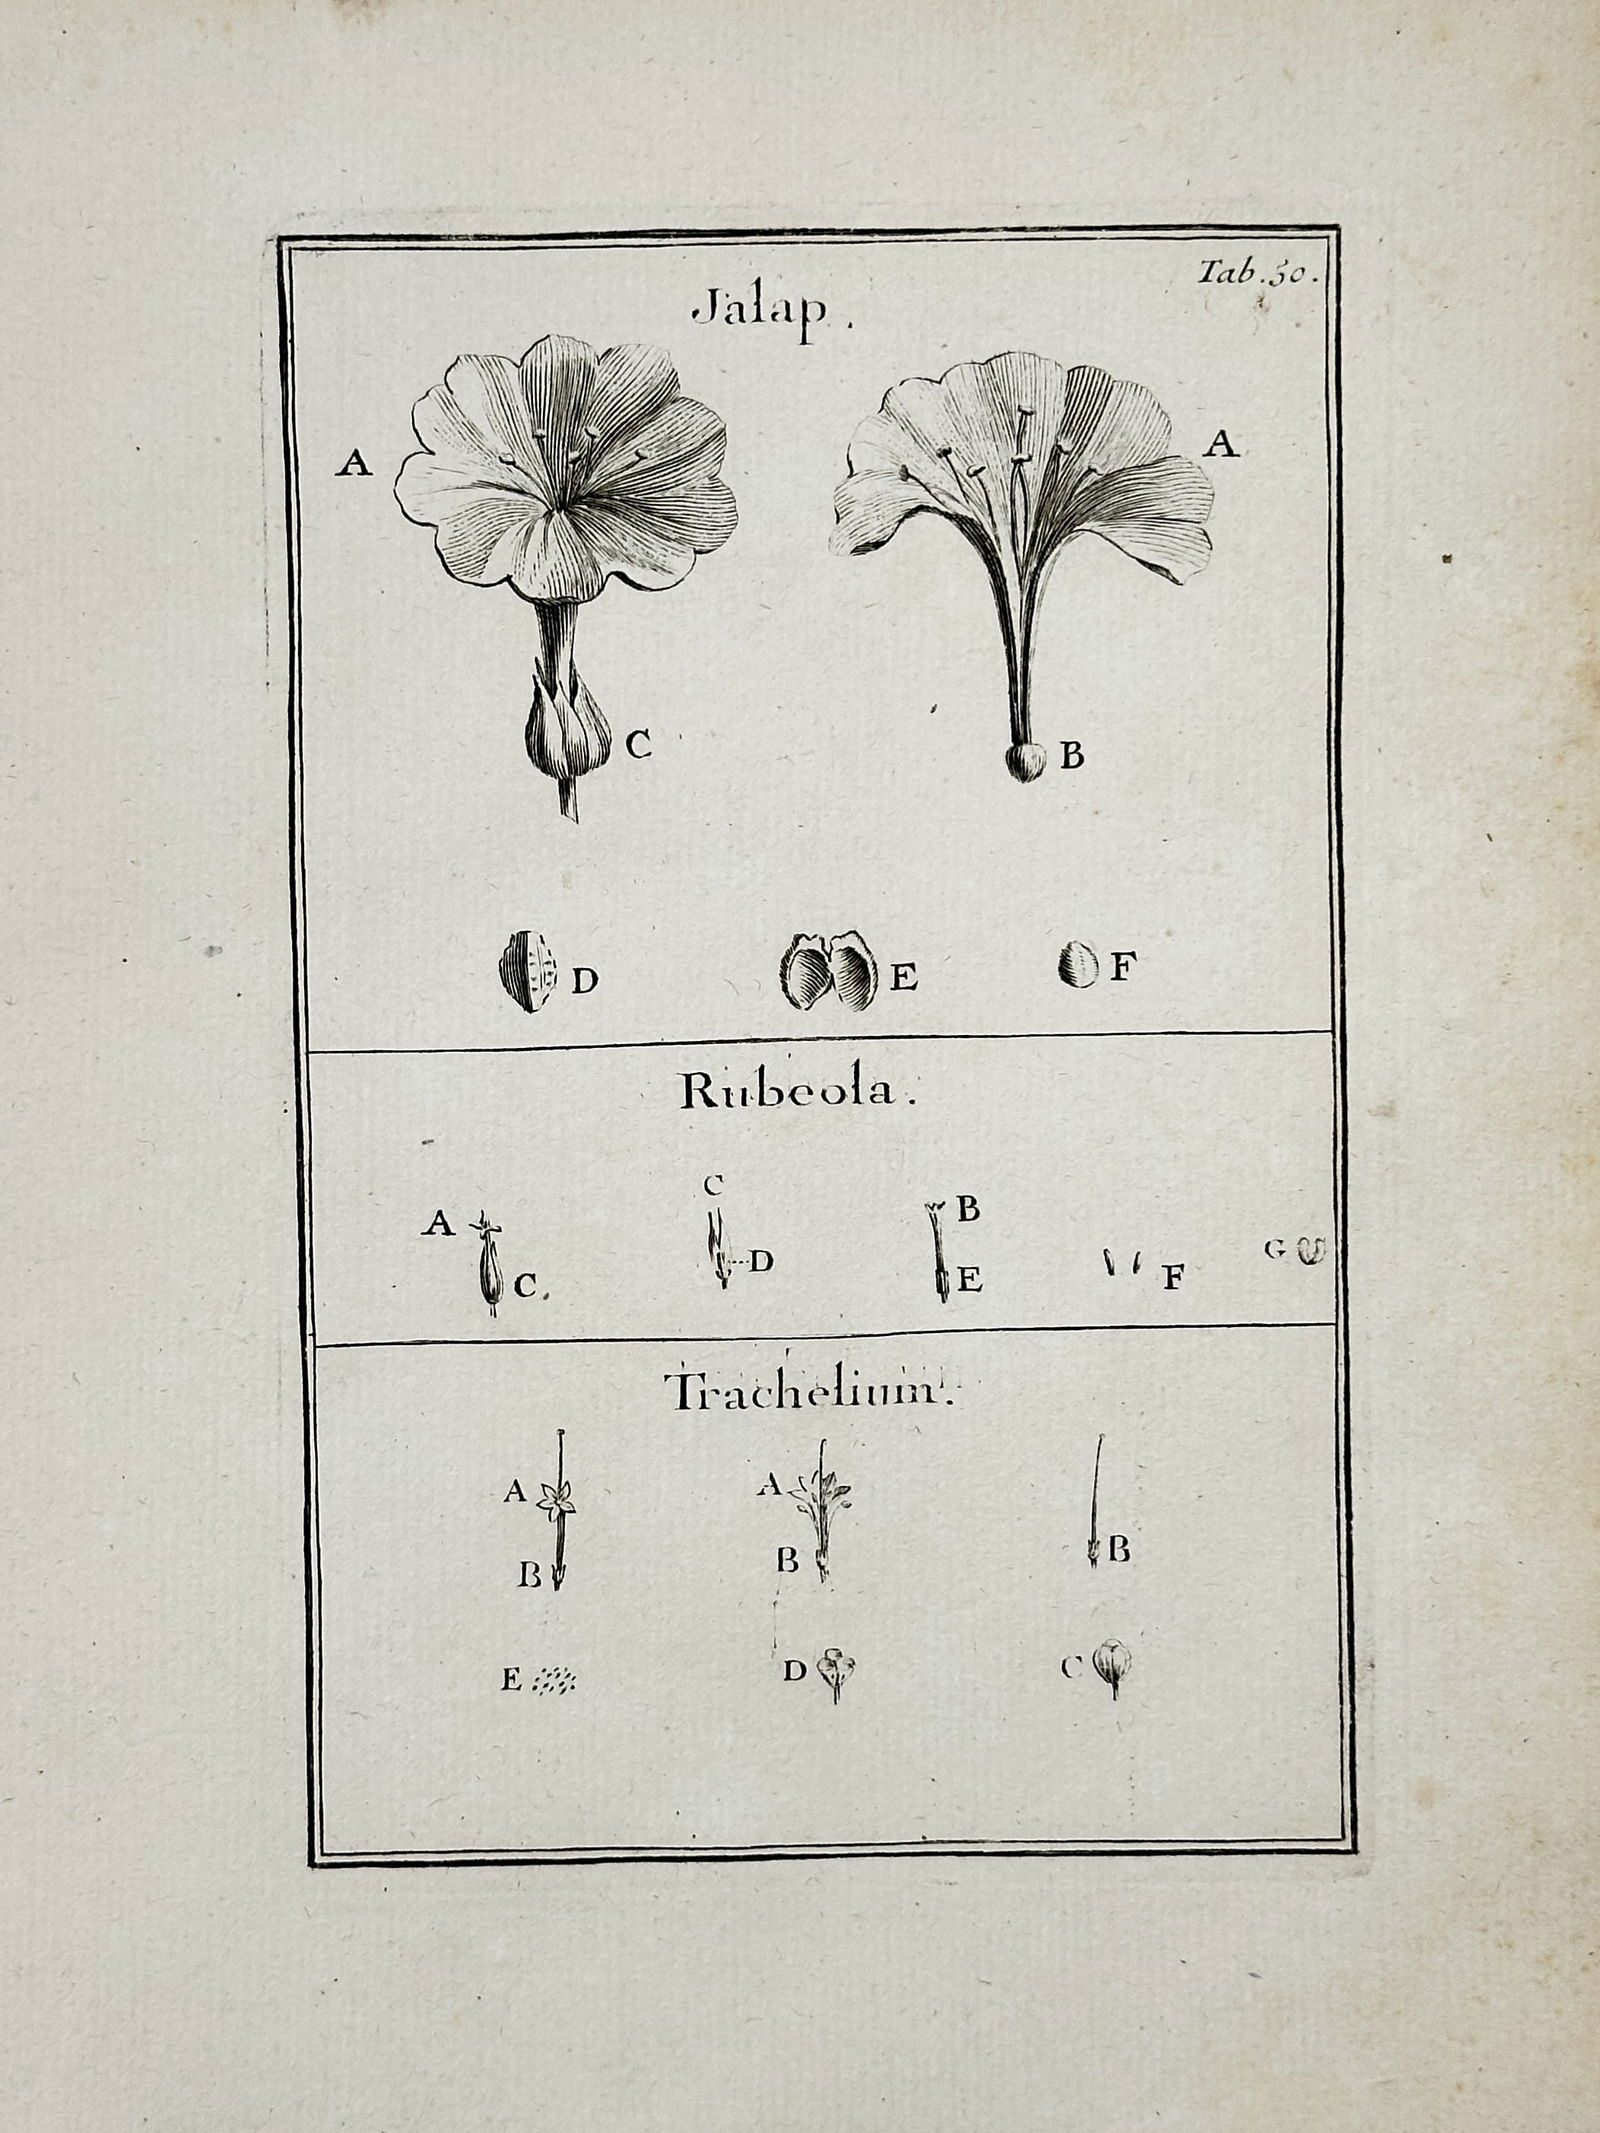 Tab. 50.
Jalap.
A A
C B
D E F
Rubeola.
C
A B
D G
C. E F
Trachelium.
A A
B B B
E D C